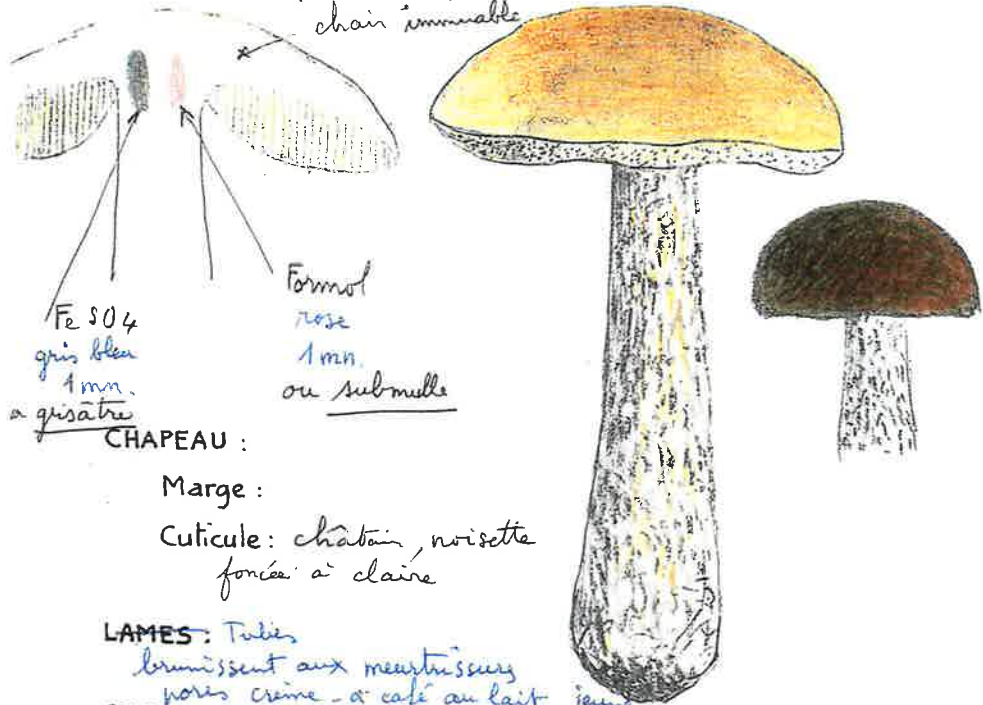 chair immuable
Fe SO4
gris bleu
1 mn.
a grisâtre
Formol
rose
1 mn.
ou submulle
CHAPEAU :
Marge :
Cuticule : châtain, noisette
foncée à claire
LAMES : Tubes
brunissent aux meurtrissures
pores crème - à café au lait